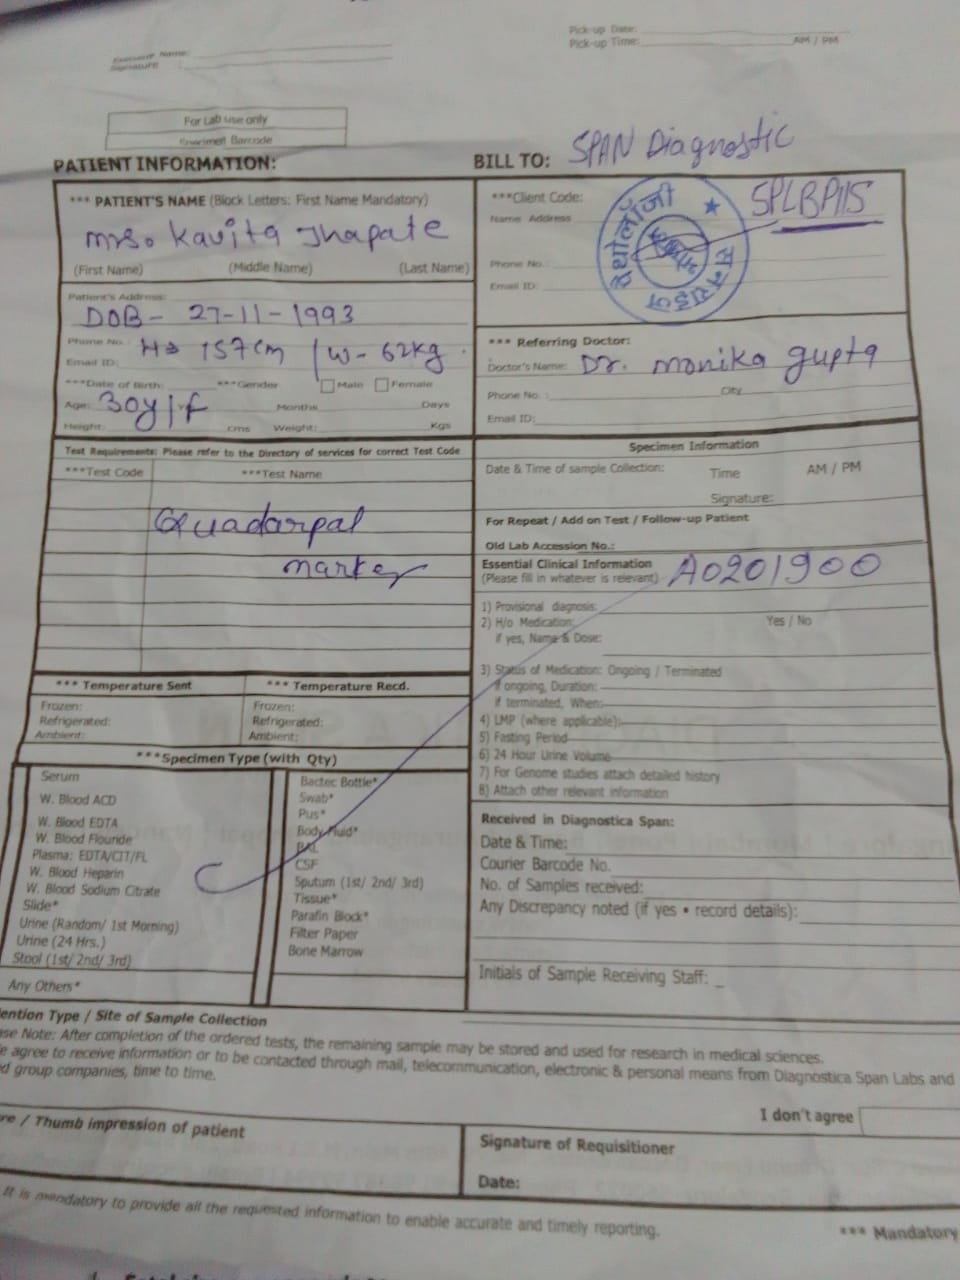 Pick-up Date:
Pick-up Time: AM / PM
Name:
Signature :
For Lab use only
Specimen Barcode
PATIENT INFORMATION:
*** PATIENT'S NAME (Block Letters: First Name Mandatory)
mrs. Kavita Thapate
(First Name) (Middle Name) (Last Name)
Patient's Address:
DOB - 27-11-1993
Phone No.
H→ 157cm / W - 62kg.
Email ID:
***Date of Birth: ***Gender Male Female
Age: 30y/f Months Days
Height: cms Weight: Kgs
BILL TO: SPAN Diagnostic
***Client Code: SPLBP115
Name Address
Phone No.:
Email ID:
पैथोलॉजी
सनराईज
*** Referring Doctor:
Doctor's Name: Dr. monika gupta
Phone No. : City
Email ID:
Test Requirements: Please refer to the Directory of services for correct Test Code
***Test Code ***Test Name
Quadarpal
marker
Specimen Information
Date & Time of sample Collection: Time AM / PM
Signature:
For Repeat / Add on Test / Follow-up Patient
Old Lab Accession No.:
Essential Clinical Information
(Please fill in whatever is relevant) A0201900
1) Provisional diagnosis:
2) H/o Medication: Yes / No
if yes, Name & Dose:
3) Status of Medication: Ongoing / Terminated
If ongoing, Duration:
if terminated, When:
4) LMP (where applicable):
5) Fasting Period
6) 24 Hour Urine Volume
7) For Genome studies attach detailed history
8) Attach other relevant information
*** Temperature Sent *** Temperature Recd.
Frozen: Frozen:
Refrigerated: Refrigerated:
Ambient: Ambient:
***Specimen Type (with Qty)
Serum
W. Blood ACD
W. Blood EDTA
W. Blood Flouride
Plasma: EDTA/CIT/FL
W. Blood Heparin
W. Blood Sodium Citrate
Slide*
Urine (Random/ 1st Morning)
Urine (24 Hrs.)
Stool (1st/ 2nd/ 3rd)
Any Others*
Bactec Bottle*
Swab*
Pus*
Body Fluid*
BAL
CSF
Sputum (1st/ 2nd/ 3rd)
Tissue*
Parafin Block*
Filter Paper
Bone Marrow
Received in Diagnostica Span:
Date & Time:
Courier Barcode No.
No. of Samples received:
Any Discrepancy noted (if yes • record details):
Initials of Sample Receiving Staff:
ention Type / Site of Sample Collection
ase Note: After completion of the ordered tests, the remaining sample may be stored and used for research in medical sciences.
e agree to receive information or to be contacted through mail, telecommunication, electronic & personal means from Diagnostica Span Labs and
d group companies, time to time.
I don't agree
re / Thumb impression of patient
Signature of Requisitioner
Date:
It is mandatory to provide all the requested information to enable accurate and timely reporting.
*** Mandatory